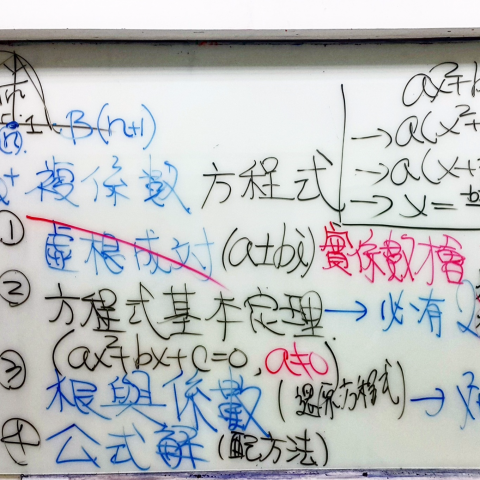 B(n+1)
複係數 方程式
① 虛根成對 (a±bi) 實係數才會
② 方程式基本定理 → 必有2
(ax²+bx+c=0, a≠0)
③ 根與係數 (還原方程式) →
④ 公式解 (配方法)
ax²+b
→ a(x²+
→ a(x+
→ x =